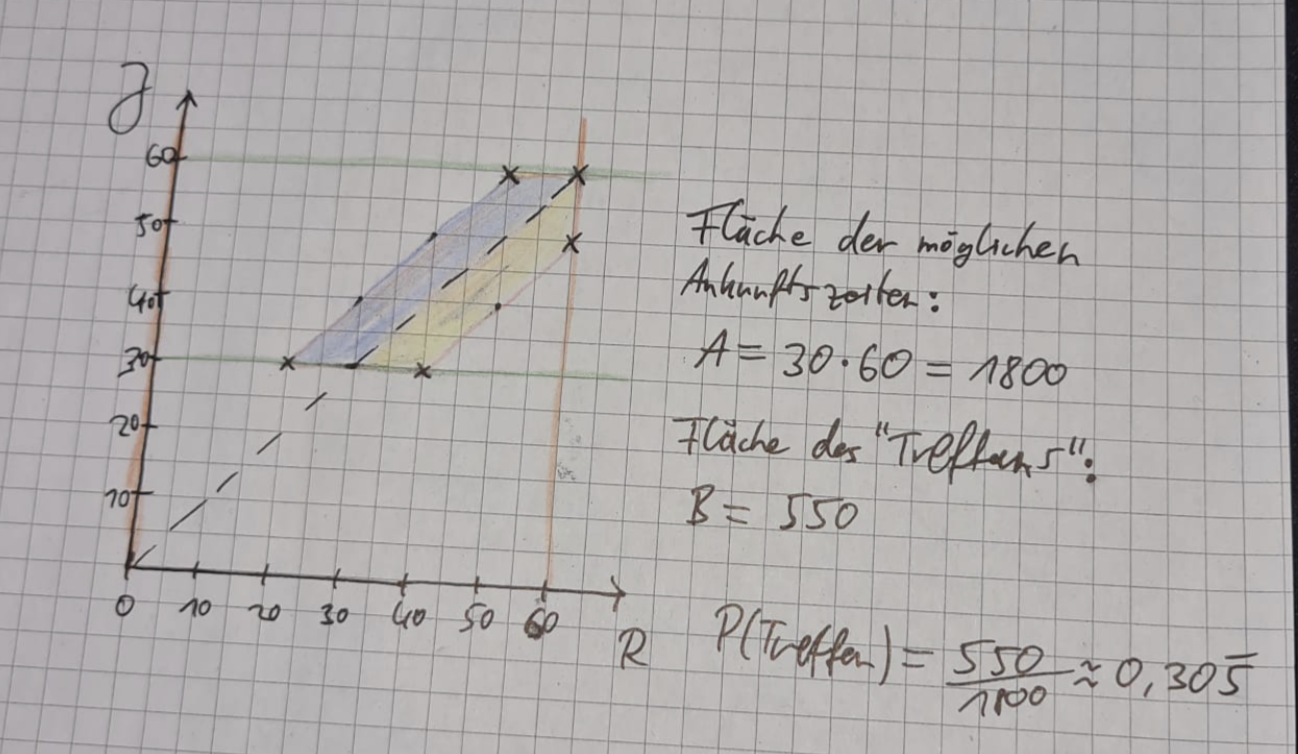 J
60
50
40
30
20
10
0 10 20 30 40 50 60
R
Fläche der möglichen
Ankunftszeiten:
A = 30·60 = 1800
Fläche des "Treffens":
B = 550
P(Treffen) = 550/1800 ≈ 0,305̅